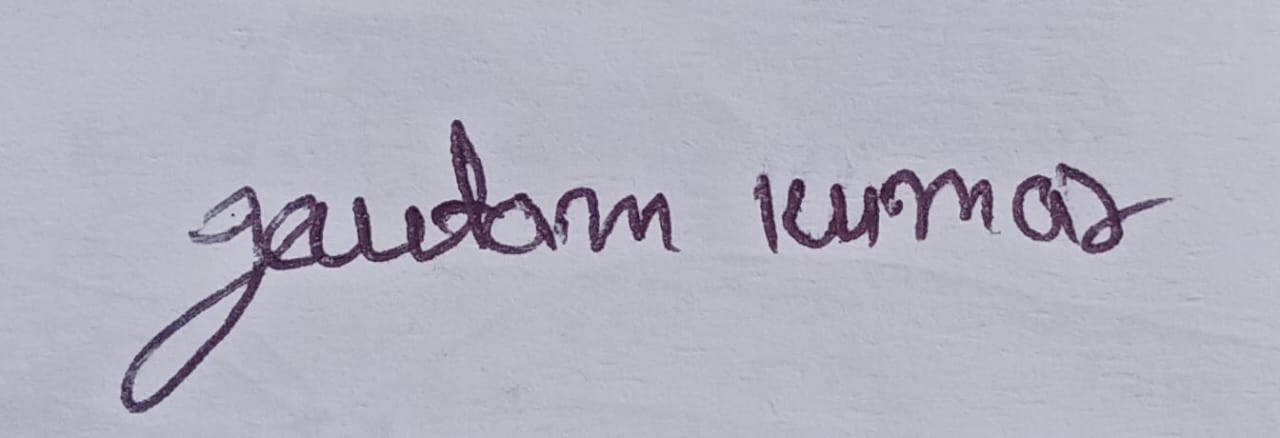 gautam kumar